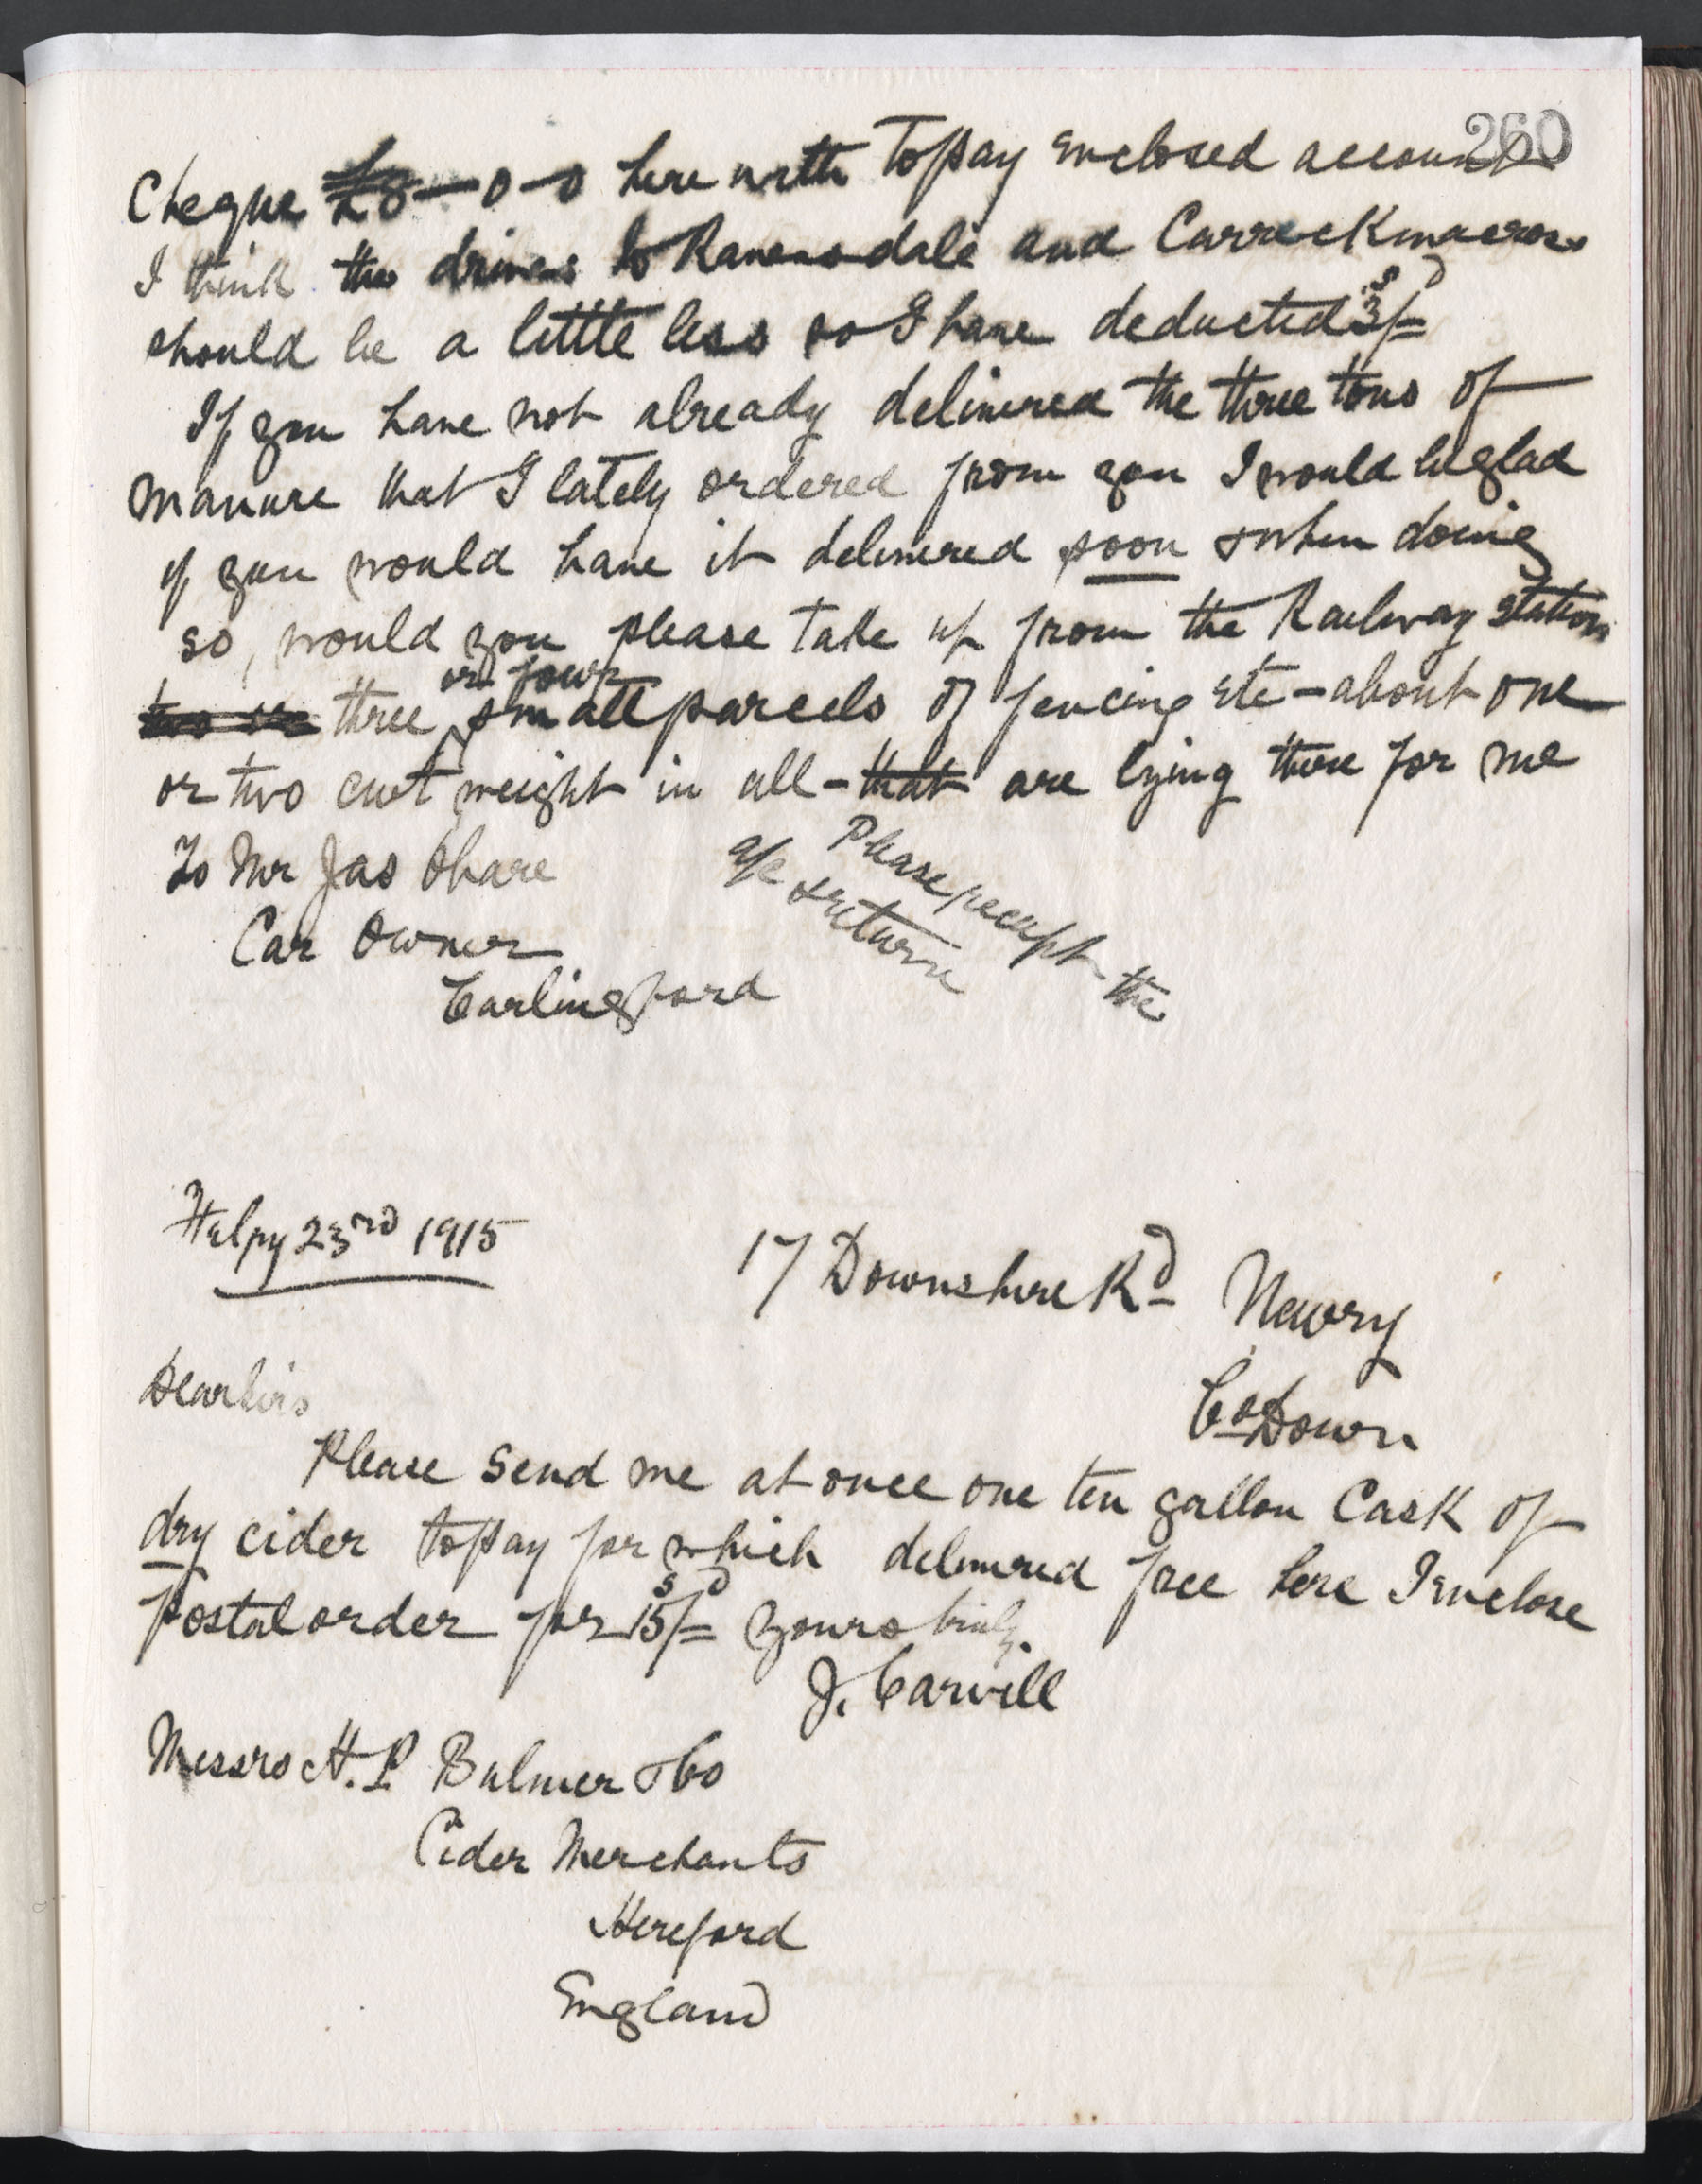 260
Cheque £8-0-0 here with to pay enclosed account
I think the drives to Ravensdale and Carrickmacross
should be a little less so I have deducted 3s/=d
If you have not already delivered the three tons of
manure that I lately ordered from you I would be glad
if you would have it delivered soon & when doing
so, would you please take up from the Railway station
or four
two or three small parcels of fencing etc - about one
or two cwt weight in all - that are lying there for me
To Mr Jas Ohare
Car Owner
Carlingford
Please receipt the
a/c & return
Feby 23rd 1915
17 Downshire Rd Newry
Co Down
Dear Sirs
Please send me at once one ten gallon Cask of
dry cider to pay for which delivered free here I enclose
postal order for 15s/=d yours truly
J. Carvill
Messrs H. P Bulmer & Co
Cider Merchants
Hereford
England